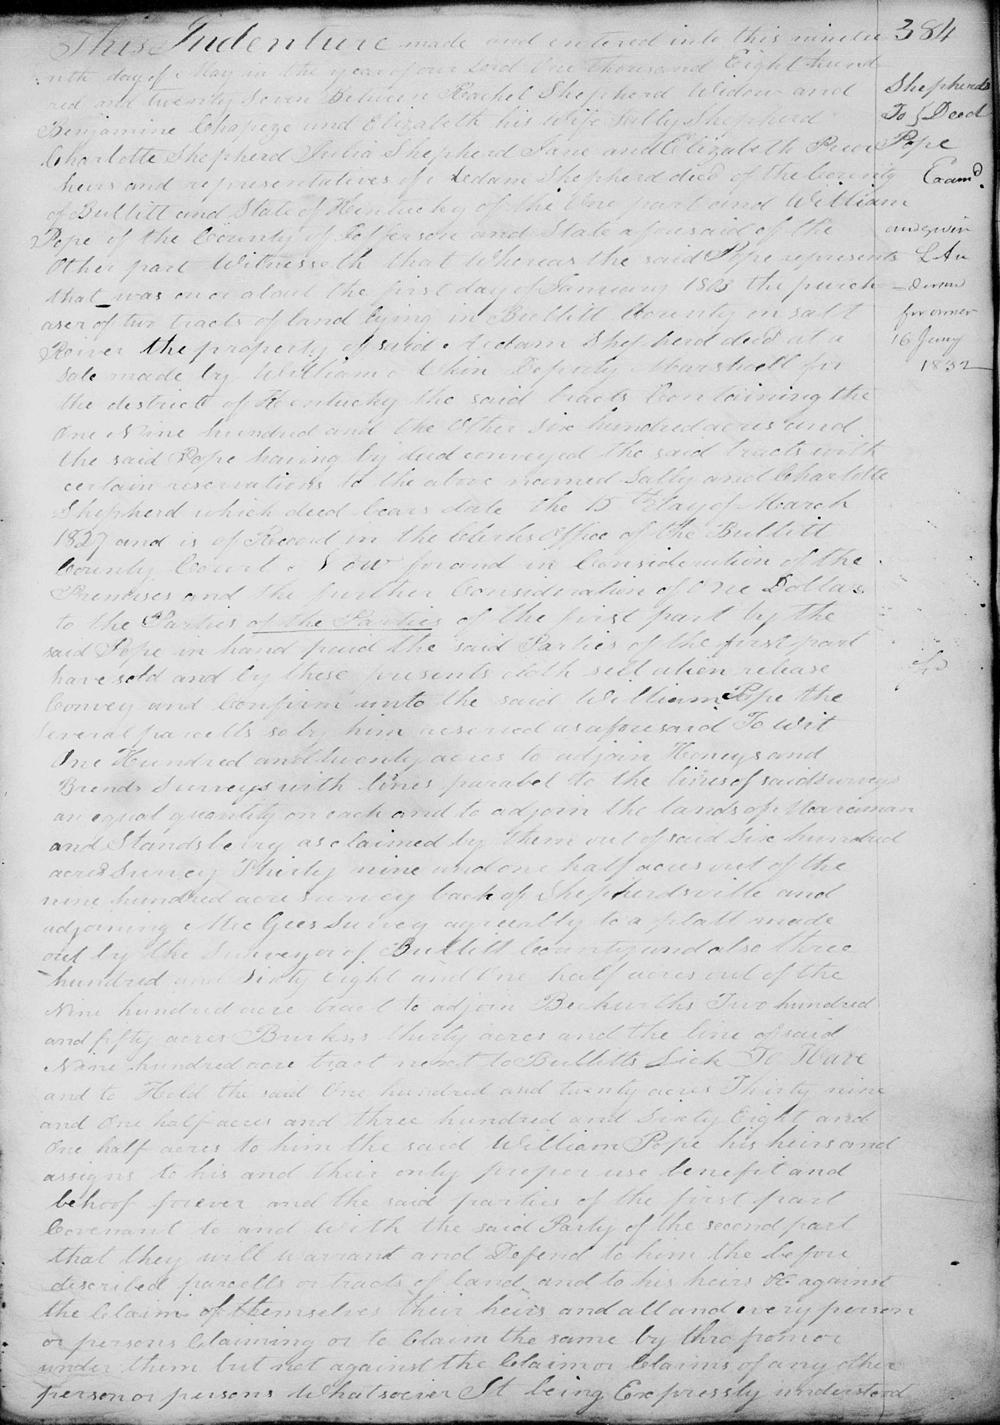 384
This Indenture made and entered into this ninetee
nth day of May in the year of our Lord One thousand Eight hund
red and twenty Seven Between Rachel Shepherd Widow and
Benjamine Chapeze and Elizabeth his Wife Sally Shepherd
Charlotte Shepherd Julia Shepherd Jane and Elizabeth
heirs and representatives of Adam Shepherd decd of the County
of Bullitt and State of Kentucky of the One part and William
Pope of the County of Jefferson and State aforesaid of the
Other part Witnesseth that Whereas the said Pope represents
that was on or about the first day of January 1803 the purch
aser of two tracts of land lying in Bullitt County on salt
River the property of said Adam Shepherd decd at a
Sale made by William Deputy Marshall for
the district of Kentucky the said tracts Containing the
One Nine hundred and the Other Six hundred acres and
the said Pope having by deed conveyed the said tracts with
certain reservations to the above named Sally and Charlotte
Shepherd which deed bears date the 15th day of March
1827 and is of Record in the Clerks Office of the Bullitt
County Court Now for and in Consideration of the
Premises and the further Consideration of One Dollar
to the Parties of the Parties of the first part by the
said Pope in hand paid the said Parties of the first part
have sold and by these presents doth sell alien release
Convey and Confirm unto the said William Pope the
Several parcells so by him reserved as aforesaid To Wit
One Hundred and twenty acres to adjoin and
Surveys with lines paralel to the lines of said surveys
an equal quantity on each and to adjoin the lands of
and Standsberry as claimed by them out of said Six hundred
acres Survey Thirty nine and one half acres out of the
nine hundred acre survey back of Shepherdsville and
adjoining McGees Survey agreeably to a platt made
out by the Surveyor of Bullitt County and also three
hundred and Sixty Eight and One half acres out of the
Nine hundred acre tract to adjoin Beckwiths Two hundred
and fifty acres Burks thirty acres and the line of said
Nine hundred acre tract next to Bullitts Lick To Have
and to Hold the said One hundred and twenty acres Thirty nine
and One half acres and three hundred and Sixty Eight and
One half acres to him the said William Pope his heirs and
assigns to his and their only proper use benefit and
behoof forever and the said parties of the first part
Covenant to and With the said Party of the second part
that they will warrant and Defend to him the before
described parcells or tracts of land and to his heirs &c against
the Claim of themselves their heirs and all and every person
or persons Claiming or to Claim the same by thro from or
under them but not against the Claim or Claims of any other
person or persons Whatsoever It being Expressly understood
Shepherds
To } Deed
Pope
Examd.
16 Juny
1832